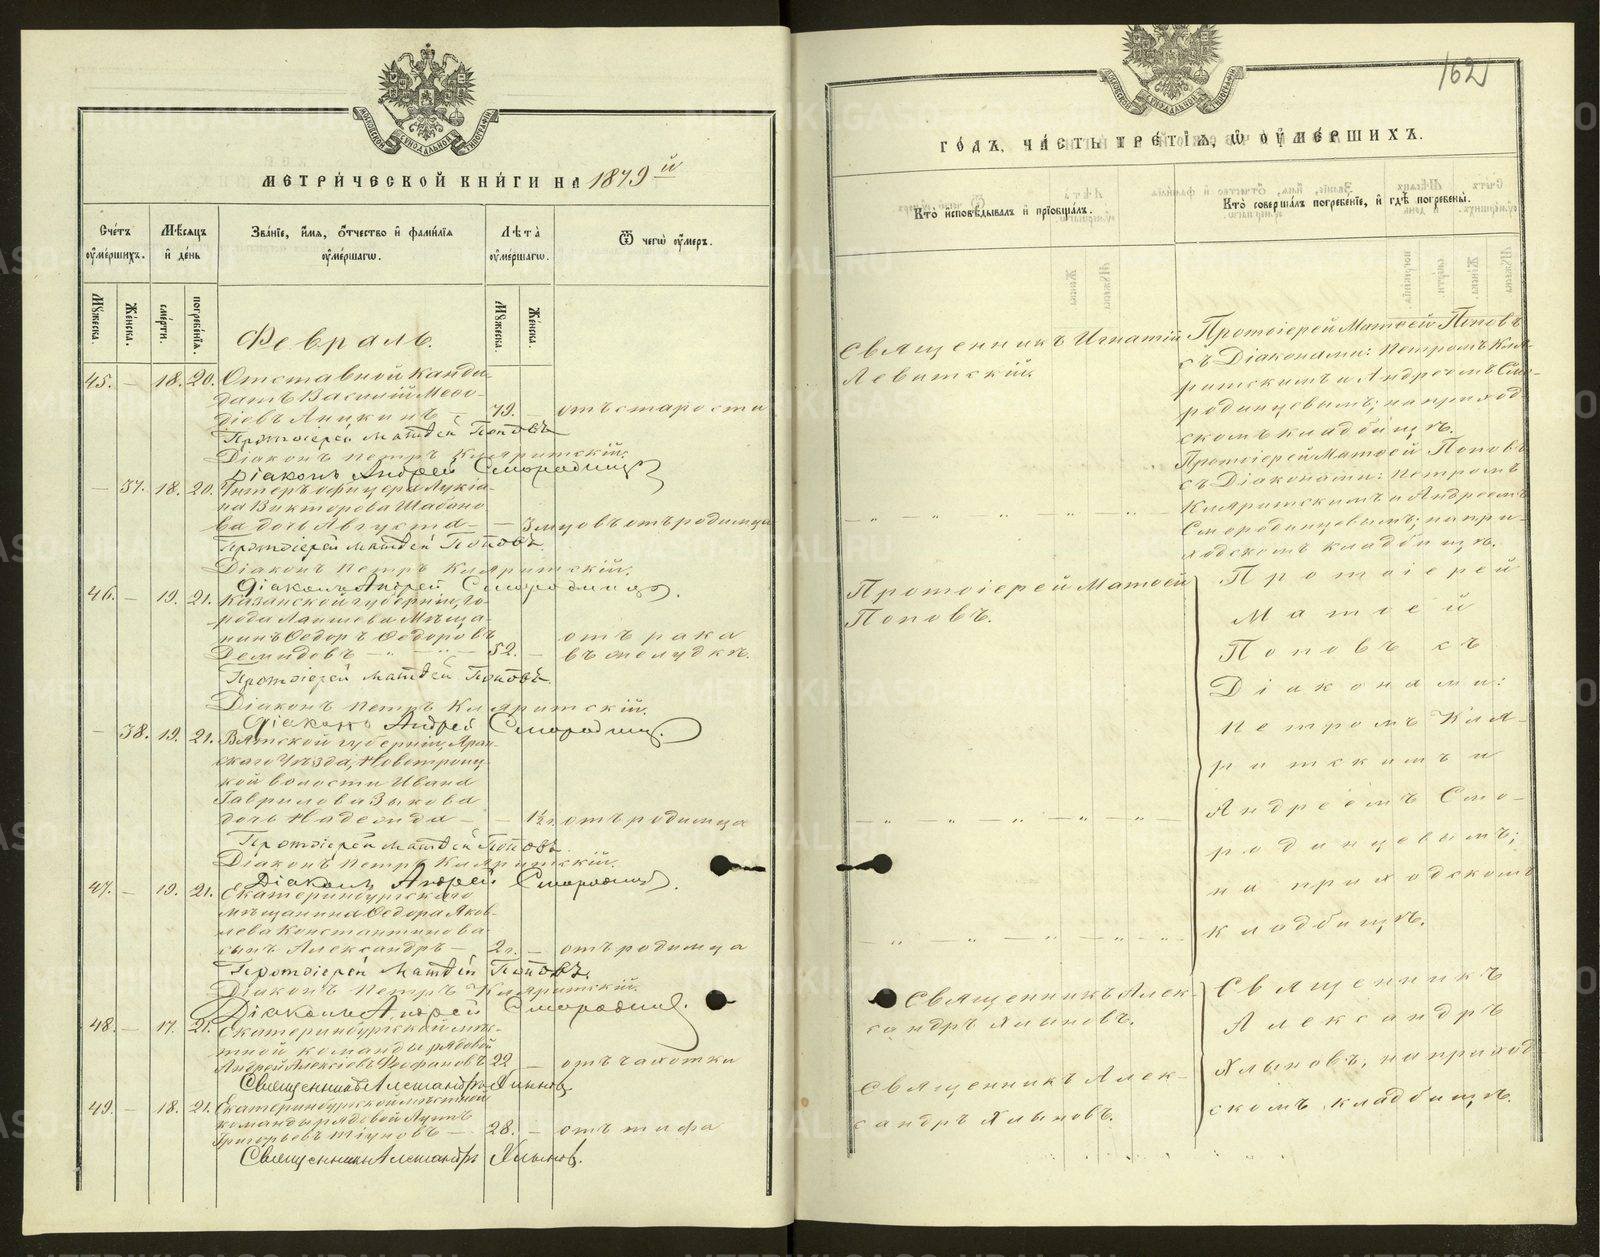 МЕТРИ́ЧЕСКОЙ КНИ́ГИ НА 1879й
Сче́тъ ᲂу҆ме́ршихъ.
Мѣ́сяцъ и҆ де́нь
Зва́нїе, и҆́мя, ѻ҆́тчество и҆ фами́лїя ᲂу҆ме́ршагѡ.
Лѣ́та ᲂу҆ме́ршагѡ.
Ѿ чегѡ̀ ᲂу҆́меръ.
Мꙋ́жеска.
Же́нска.
сме́рти.
погребе́нїя.
Мꙋ́жеска.
Же́нска.
Февраль.
45. — 18. 20. Отставной канди-
датъ Василій Меѳо-
діевъ Аницинъ — 79. — отъ старости
Протоіерей Матѳей Поповъ
Діаконъ Петръ Кляритскій.
Діаконъ Андрей Смородинцевъ
— 37. 18. 20. Унтеръ офицера Лукіа-
на Викторова Шабано-
ва дочь Августа — — 3 мцовъ отъ родимца
Протоіерей Матѳей Поповъ.
Діаконъ Петръ Кляритскій.
Діаконъ Андрей Смородинцевъ.
46. — 19. 21. Казанской губерніи, го-
рода Лаишева Мѣща-
нинъ Ѳедоръ Ѳедоровъ отъ рака
Демидовъ — " — " — 52. — въ желудкѣ.
Протоіерей Матѳей Поповъ.
Діаконъ Петръ Кляритскій.
Діаконъ Андрей Смородинцевъ.
— 38. 19. 21. Вятской губерніи, Яран-
скаго Уѣзда, Новотроиц-
кой волости Ивана
Гаврилова Зыкова
дочь Надежда — — 1½ г. отъ родимца
Протоіерей Матѳей Поповъ.
Діаконъ Петръ Кляритскій.
Діаконъ Андрей Смородинцевъ.
47. — 19. 21. Екатеринбургскаго
мѣщанина Ѳедора Яков-
лева Константинова
сынъ Александръ — 2 г. — отъ родимца
Протоіерей Матѳей Поповъ.
Діаконъ Петръ Кляритскій.
Діаконъ Андрей Смородинцевъ.
48. — 17. 21. Екатеринбургской мѣст-
ной команды рядовой
Андрей Алексѣевъ 22 — отъ чахотки
Священникъ Александръ Хлыновъ
49. — 18. 21. Екатеринбургской мѣстной
команды рядовой
Григорьевъ — 28. — отъ тифа
Священникъ Александръ Хлыновъ.
162
ГО́ДЪ, ЧА́СТЬ ТРЕ́ТІѦ, Ѡ҆ ОУ҆МЕ́РШИХЪ.
Кто̀ и҆сповѣ́дывалъ и҆ прїѡбща́лъ.
Кто̀ соверша́лъ погребе́нїе, и҆ гдѣ̀ погребены̀.
Священникъ Игнатій
Левитскій.
Протоіерей Матѳей Поповъ
съ Діаконами: Петромъ Кля-
ритскимъ и Андреемъ Смо-
родинцевымъ; на приход-
скомъ кладбищѣ.
— " — " — " — " —
Протоіерей Матѳей Поповъ
съ Діаконами: Петромъ
Кляритскимъ и Андреемъ
Смородинцевымъ; на при-
ходскомъ кладбищѣ.
Протоіерей Матѳей
Поповъ.
— " — " — " — " —
— " — " — " — " —
Протоіерей
Матѳей
Поповъ съ
Діаконами:
Петромъ Кля-
ритскимъ и
Андреемъ Смо-
родинцевымъ;
на приходскомъ
кладбищѣ.
Священникъ Алек-
сандръ Хлыновъ.
Священникъ Алек-
сандръ Хлыновъ.
Священникъ
Александръ
Хлыновъ; на приход-
скомъ кладбищѣ.